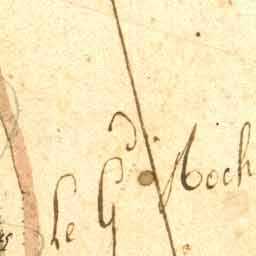 Le Gd Roch